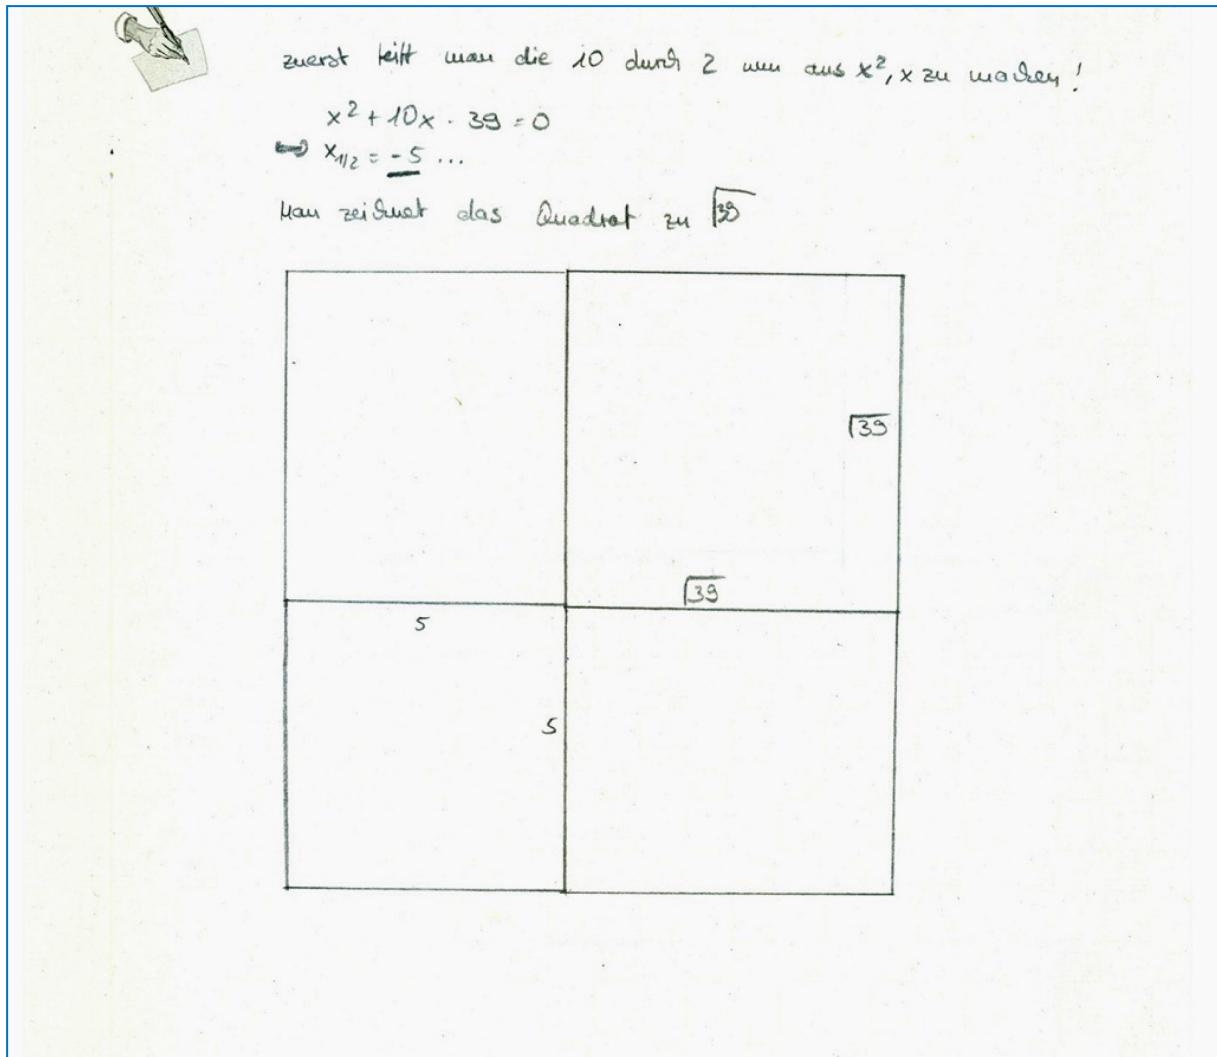 zuerst teilt man die 10 durch 2 um aus x², x zu machen!
x² + 10x - 39 = 0
⟺ x₁/₂ = -5 ...
Man zeichnet das Quadrat zu √39
√39
√39
5
5